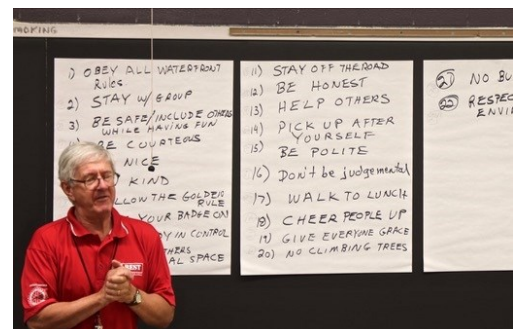 MOKING
1) OBEY ALL WATERFRONT
Rules
2) STAY w/ GROUP
3) BE SAFE/INCLUDE OTHERS
WHILE HAVING FUN
BE COURTEOUS
NICE
KIND
LLOW THE GOLDEN
RULE
YOUR BADGE ON
DY IN CONTROL
THERS
AL SPACE
11) STAY OFF THE ROAD
12) BE HONEST
13) HELP OTHERS
14) PICK UP AFTER
YOURSELF
15) BE POLITE
16) Don't be judgemental
17) WALK TO LUNCH
18) CHEER PEOPLE UP
19) GIVE EVERYONE GRACE
20) NO CLIMBING TREES
21) NO BU
22) RESPEC
ENVI